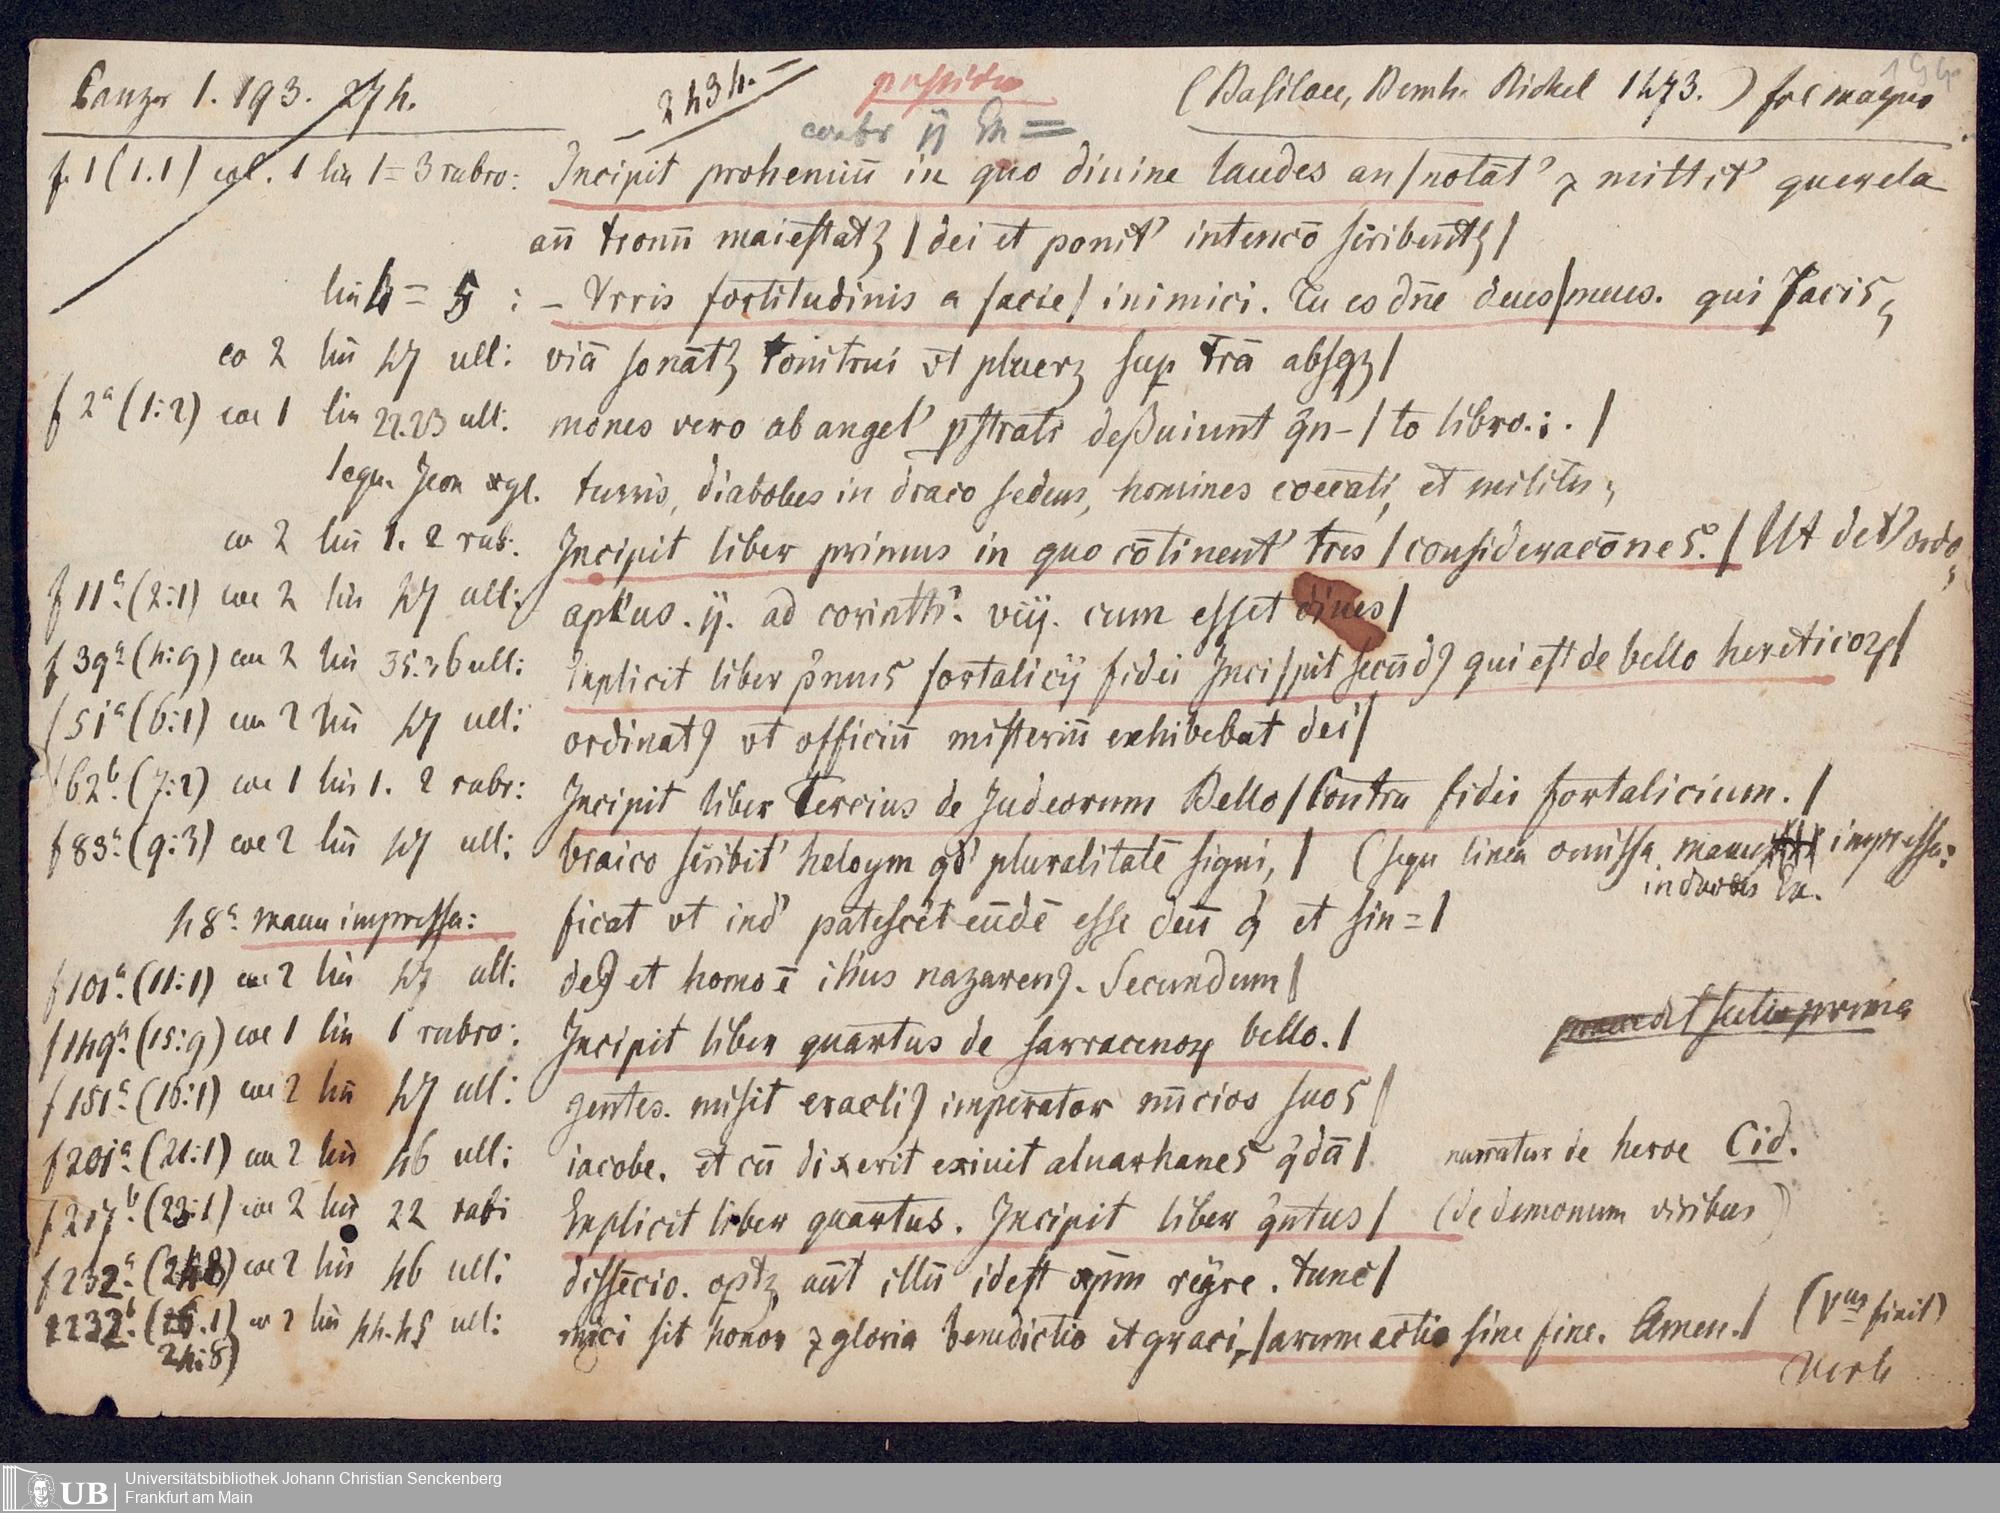 Panzer 1. 193. 274.
2434.
(Basileae, Bernh. Richel 1473.) fol magno
f. 1 (1.1) col. 1 lin 1=3 rubro: Incipit prohemiū in quo diuine laudes an/notāt' ⁊ mittit' querela
aū tronū maiestatꝫ / dei et ponit' intencō scribentꝫ /
lin 4 = 5 : – Vrris fortitudinis a facie / inimici. Tu es dn̄e deus / meus. qui facis,
co 2 lin 47 ult: viā sonātꝫ tonitrui vt pluerꝫ sup trā absqꝫ /
f 2ᵃ (1:2) col 1 lin 22.23 ult: mones vero ab angel' pstrati defluiunt qn– / to libro.:. /
sequ. Icon xyl. turris, diabolus in draco sedens, homines coecati, et milites,
co 2 lin 1. 2 rub: Incipit liber primus in quo cōtinent' tres / consideracōnes. / Ut det' ordo,
f 11ᵃ. (2:1) col 2 lin 47 ult: ap̄lus. ij. ad corinth'. viij. cum esset diues /
f 39ᵃ (4:9) col 2 lin 35.36 ult: Explicit liber p'mus fortalicij fidei Inci / pit secūdꝰ qui est de bello hereticoꝝ /
f 51ᵃ (6:1) col 2 lin 47 ult: ordinatꝰ vt officiū misteriū exhibebat dei /
f 62ᵇ. (7:2) col 1 lin 1. 2 rubr: Incipit liber Tercius de Iudeorum Bello / Contra fidei fortalicium. /
f 83ᵃ. (9:3) col 2 lin 47 ult: braico scribit' heloym qd' pluralitatē signi, / (sequ linea omissa manu impressa:
in duobus Ex.
48ᵃ manu impressa: ficat vt ind' patescēt eūdē esse deū q et sin = /
f 101ᵃ. (11:1) col 2 lin 47 ult: deꝰ et homo ē ihus nazarenꝰ. Secundum /
f 149ᵃ. (15:9) col 1 lin 1 rubro: Incipit liber quartus de sarracenoꝝ bello. /
f 151ᵃ. (16:1) col 2 lin 47 ult: gentes. misit eracliꝰ imperator nūcios suos /
f 201ᵃ. (21:1) col 2 lin 46 ult: iacobe. et cū dixerit exiuit aluarhanes q'dā / narratur de heroe Cid.
f 217ᵇ (23:1) col 2 lin 22 rub: Explicit liber quartus. Incipit liber q̄ntus / (de demonum viribus)
f 232ᵃ. (24:8) col 2 lin 46 ult: dissēcio. optꝫ aūt illū idest xp̄m regre. tunc /
f 232ᵇ. (25.1) co 2 lin 44.45 ult: mici sit honor ⁊ gloria benedictio et graci, / arum actio sine fine. Amen. / (Vᵘˢ finit)
24:8)
UB
Universitätsbibliothek Johann Christian Senckenberg
Frankfurt am Main